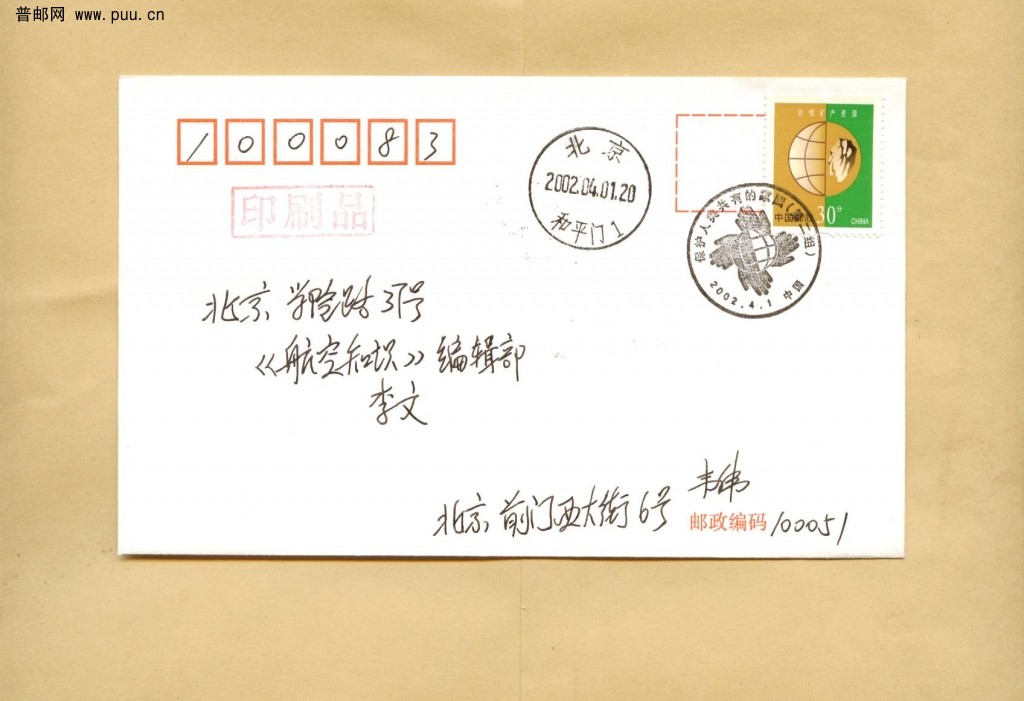 普邮网 www.puu.cn
100083
印刷品
北京
2002.04.01.20
和平门1
珍惜矿产资源
中国邮政 30分 CHINA
保护人类共有的家园(第二组)
2002.4.1 中国
北京 学院路37号
《航空知识》编辑部
李文
韦伟
北京前门西大街6号 邮政编码 100051